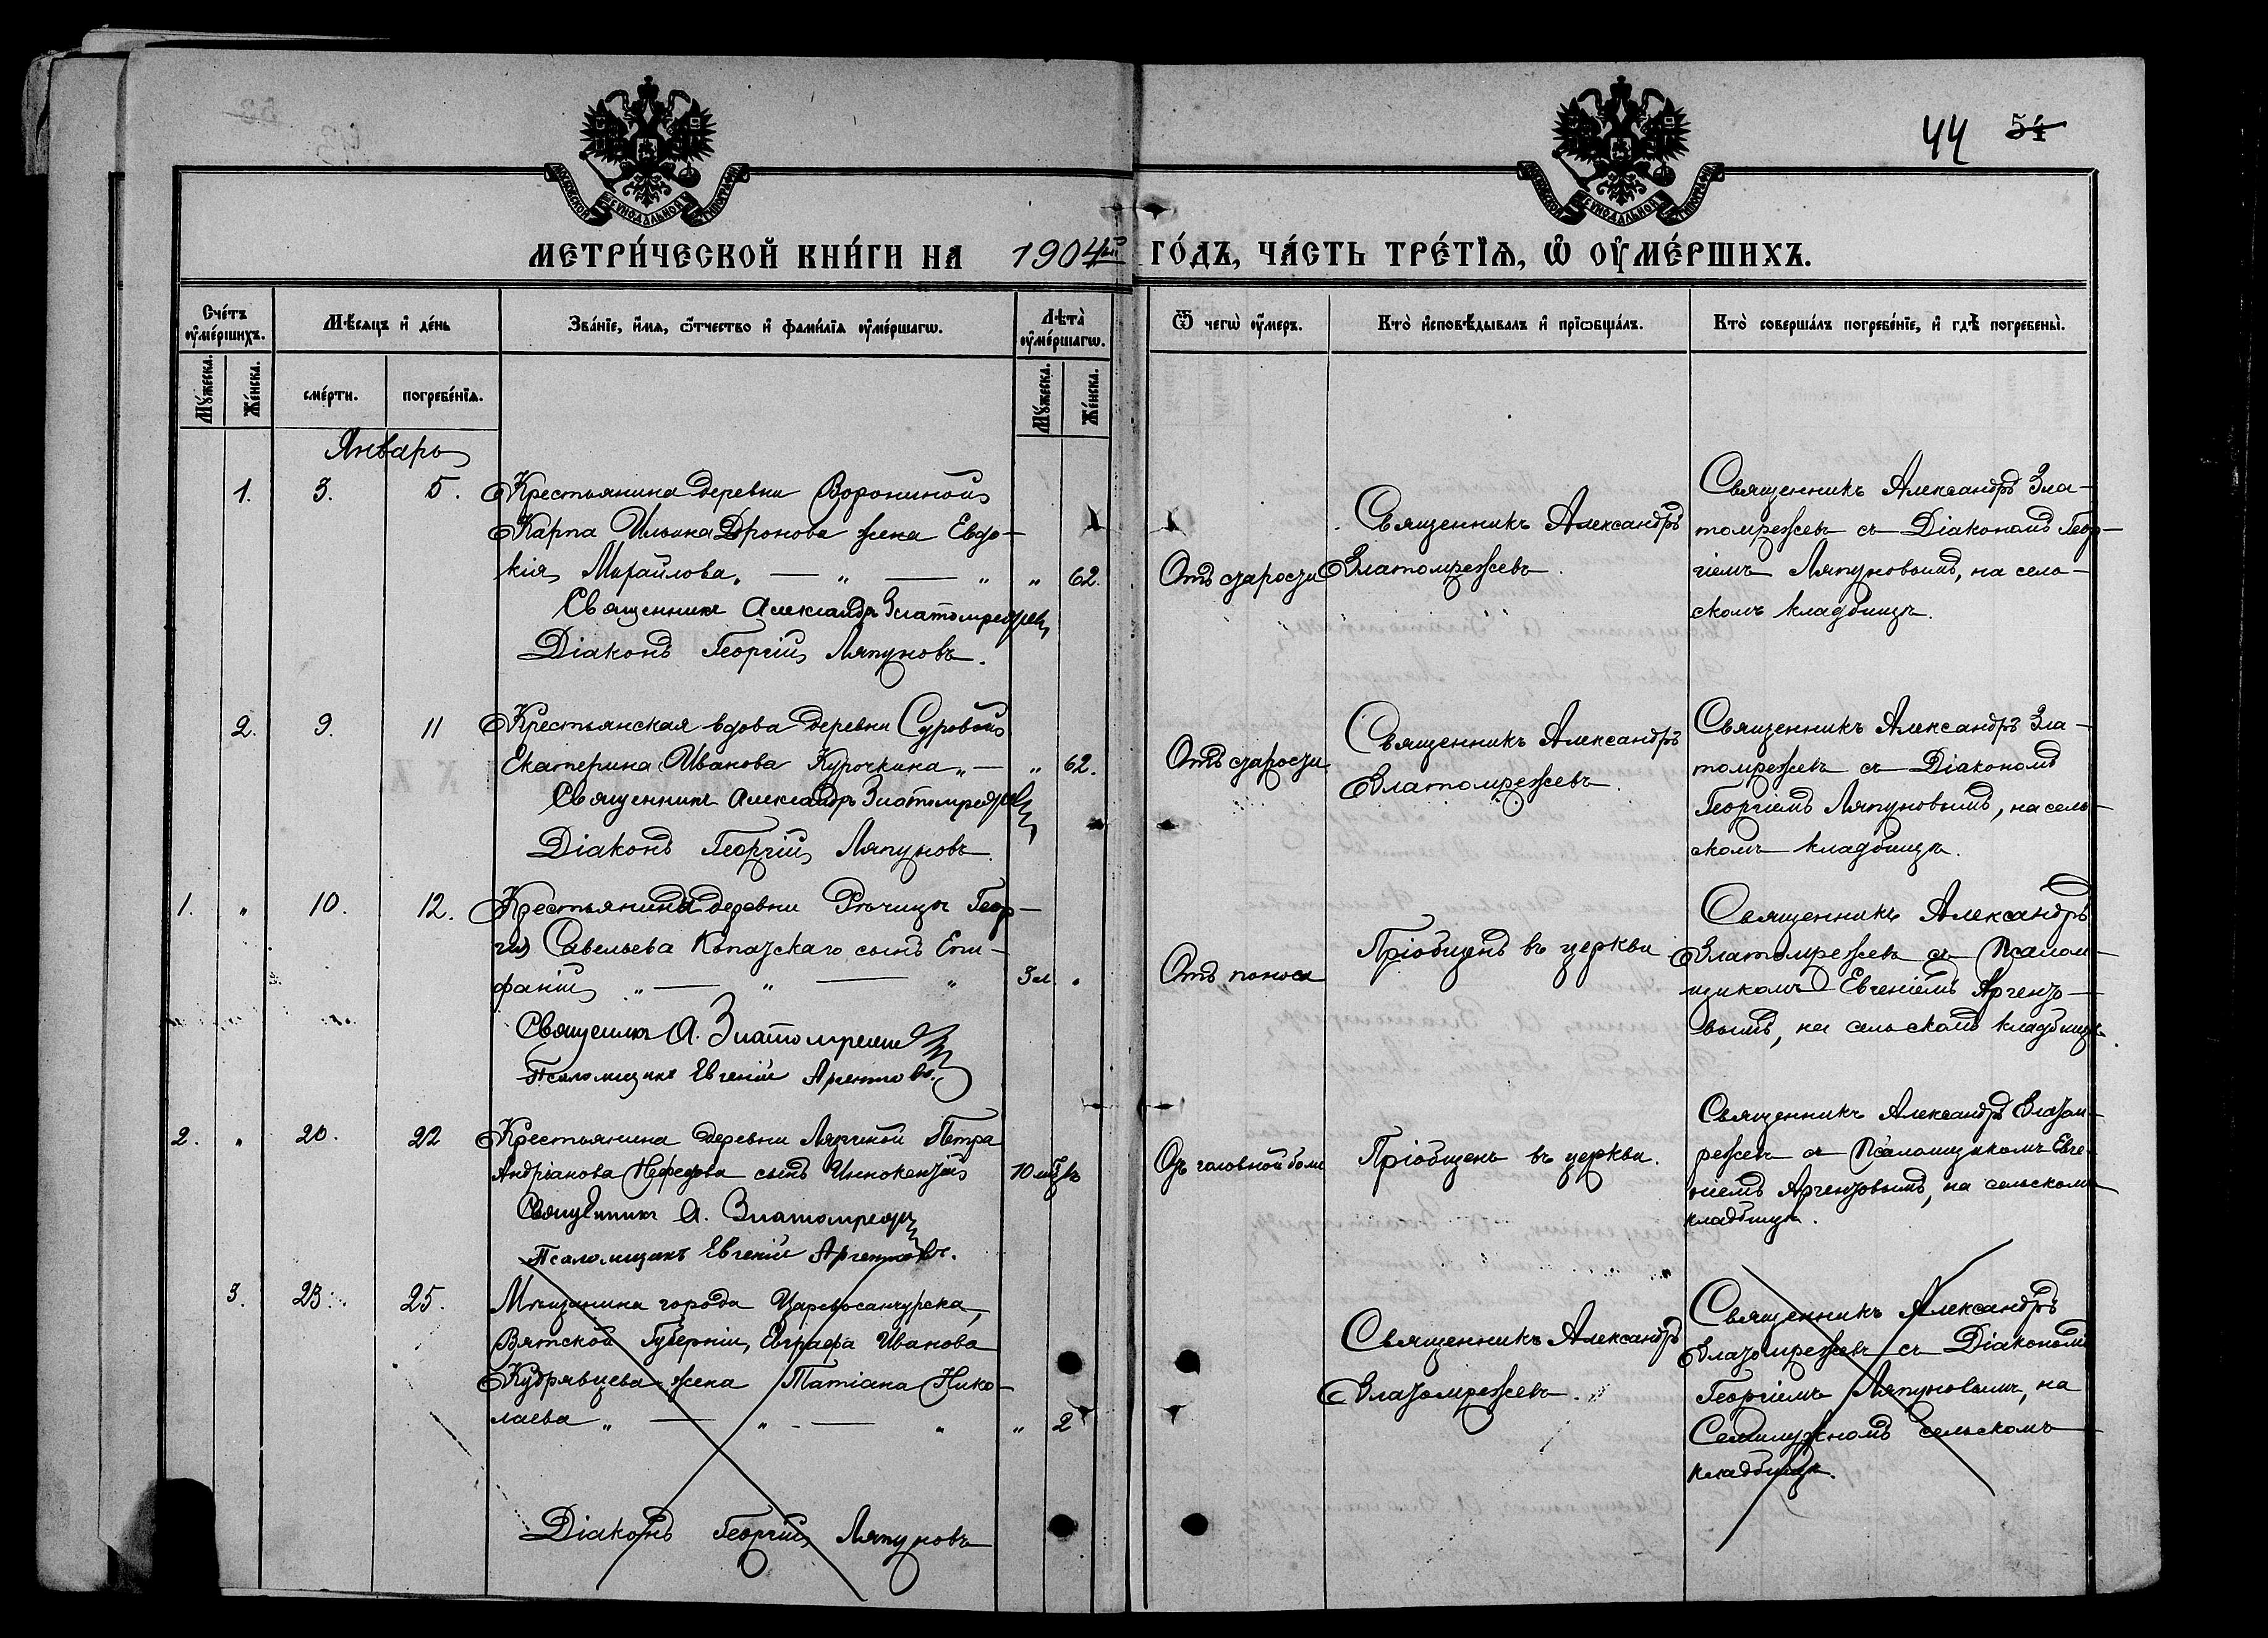 44 54
МОСКОВСКОЙ СѴНОДАЛЬНОЙ ТИПОГРАФІИ
МОСКОВСКОЙ СѴНОДАЛЬНОЙ ТИПОГРАФІИ
МЕТРИ́ЧЕСКОЙ КНИ́ГИ НА 1904й ГО́ДЪ, ЧА́СТЬ ТРЕ́ТІѦ, Ѡ҆ ОУ҆МЕ́РШИХЪ.
Сче́тъ оу҆ме́ршихъ.
Мѣ́сяцъ и҆ де́нь
Зва́нїе, и҆́мя, ѻ҆́тчество и҆ фами́лїя оу҆ме́ршагѡ.
Лѣта̀ оу҆ме́ршагѡ.
Ѿ чегѡ̀ оу҆́меръ.
Кто̀ и҆сповѣ́дывалъ и҆ прїѡбща́лъ.
Кто̀ соверша́лъ погребе́нїе, и҆ гдѣ̀ погребены̀.
Му́жеска.
Же́нска.
сме́рти.
погребе́нїя.
Му́жеска.
Же́нска.
Январь
1. 3. 5. Крестьянина деревни Ворониной
Карпа Ильина Дронова жена Евдо-
кія Михайлова „ — „ — „ „ 62.
Священникъ Александръ Златомрежев
Діаконъ Георгій Ляпуновъ.
Отъ старости
Священникъ Александръ
Златомрежевъ.
Священникъ Александръ Зла-
томрежевъ съ Діакономъ Геор-
гіемъ Ляпуновымъ, на сель-
скомъ кладбищѣ.
2. 9. 11 Крестьянская вдова деревни Суровой
Екатерина Иванова Курочкина „ — „ 62.
Священникъ Александръ Златомрежев
Діаконъ Георгій Ляпуновъ.
Отъ старости.
Священникъ Александръ
Златомрежевъ.
Священникъ Александръ Зла-
томрежевъ съ Діакономъ
Георгіемъ Ляпуновымъ, на сель-
скомъ кладбищѣ.
1. „ 10. 12. Крестьянина деревни Рѣчицы Геор-
гія Савельева сынъ Епи-
фаній „ — „ — „ 3 м. „
Священникъ А. Златомрежев
Псаломщикъ Евгеній Аргентовъ.
Отъ поноса
Пріобщенъ въ церкви
Священникъ Александръ
Златомрежевъ съ Псалом-
щикомъ Евгеніемъ Аргенто-
вымъ, на сельскомъ кладбищѣ.
2. „ 20. 22 Крестьянина деревни Петра
Андріанова Нефедова сынъ Иннокентій 10 лѣтъ
Священникъ А. Златомрежев
Псаломщикъ Евгеній Аргентовъ.
Отъ головной боли
Пріобщенъ въ церкви.
Священникъ Александръ Златом-
режевъ съ Псаломщикомъ Евге-
ніемъ Аргентовымъ, на сельскомъ
кладбищѣ.
3. 23. 25. Мѣщанина города Царевосанчурска,
Вятской Губерніи, Евграфа Иванова
Кудрявцева жена Татіана Нико-
лаева „ — „ — „ „ 2
Діаконъ Георгій Ляпуновъ
Священникъ Александръ
Златомрежевъ.
Священникъ Александръ
Златомрежевъ съ Діакономъ
Георгіемъ Ляпуновымъ, на
Семилужномъ сельскомъ
кладбищѣ.